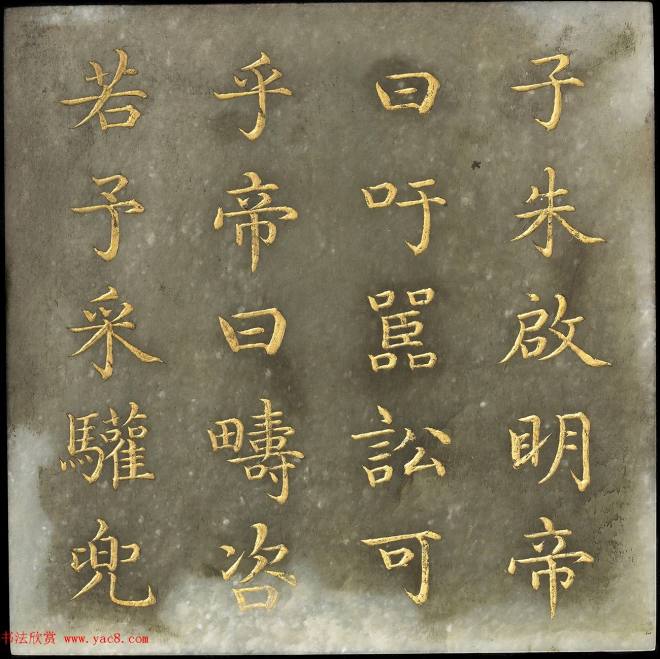 子朱啟明帝
曰吁嚚訟可
乎帝曰疇咨
若予采驩兜
书法欣赏 www.yac8.com